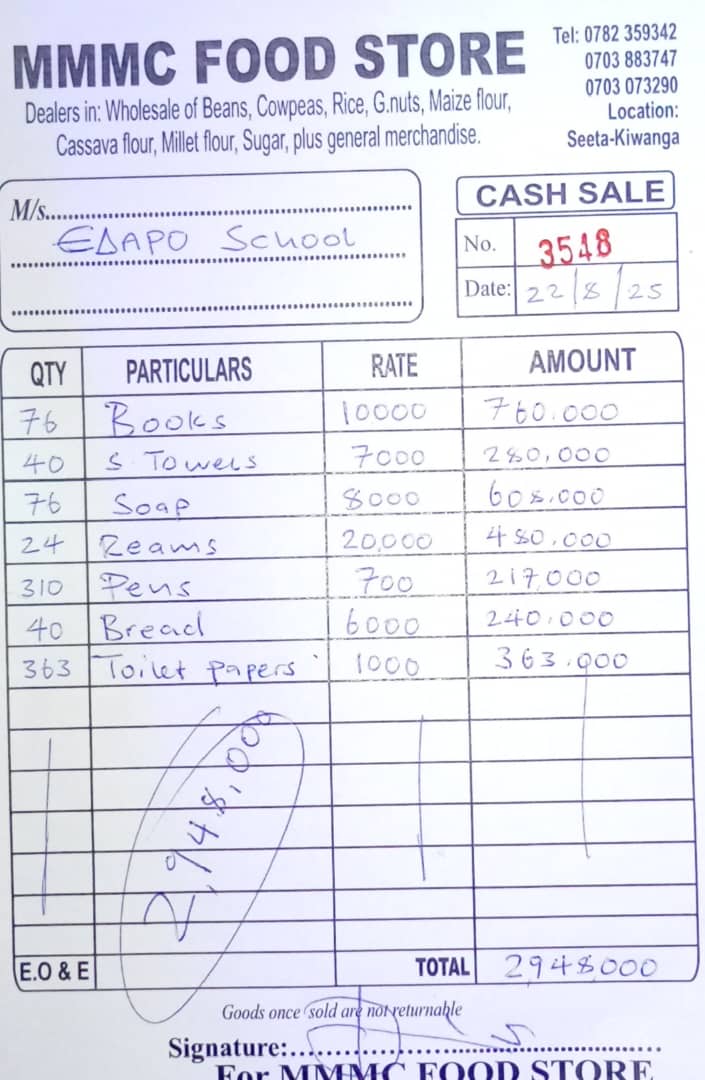 MMMC FOOD STORE
Tel: 0782 359342
0703 883747
0703 073290
Location:
Seeta-Kiwanga
Dealers in: Wholesale of Beans, Cowpeas, Rice, G.nuts, Maize flour,
Cassava flour, Millet flour, Sugar, plus general merchandise.
M/s.
EDAPO School
CASH SALE
No. 3548
Date: 22/8/25
QTY PARTICULARS RATE AMOUNT
76 Books 10000 760.000
40 S Towels 7000 280,000
76 Soap 8000 608.000
24 Reams 20,000 480.000
310 Pens 700 217,000
40 Bread 6000 240.000
363 Toilet papers 1000 363.000
2,948,000
E.O & E TOTAL 2948000
Goods once sold are not returnable
Signature:
For MMMC FOOD STORE